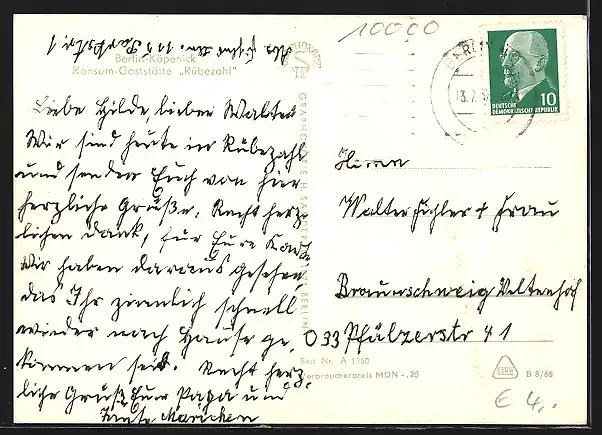 10000
Berlin-Köpenick
Konsum-Gaststätte „Rübezahl"
Liebe Hilde, lieber Walter
Wir sind heute in Rübezahl
und senden Euch von hier
herzliche Grüße. Recht herz-
lichen Dank, für Eure Karte
Wir haben daraus gesehen
das Ihr ziemlich schnell
wieder nach Hause ge-
kommen seid. Recht herz-
liche Grüße Euer Papa und
Tante Mariechen
BERLIN
DEUTSCHE
DEMOKRATISCHE REPUBLIK
10
Herrn
Walter Fichler + Frau
Braunschweig Veltenhof
033 Pfälzerstr 41
Best. Nr. A 1360
Verbraucherpreis MDN -,25
B 8/66
€ 4,..